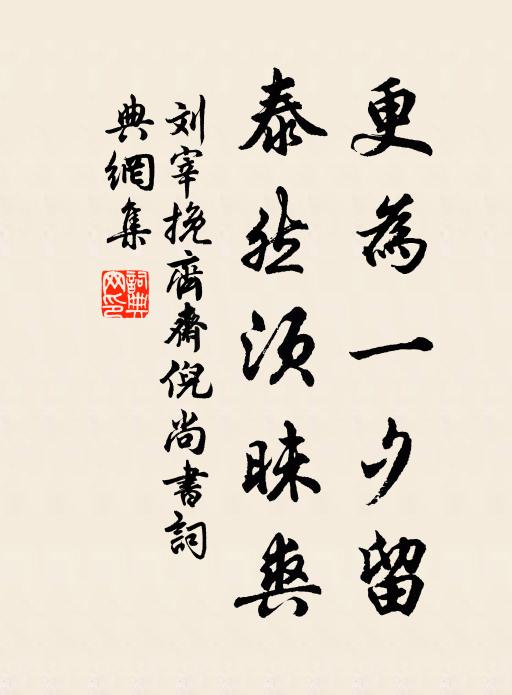 更為一夕留
泰然須昧爽
刘宰挽齊齋倪尚書詞
典網集
詞典网印